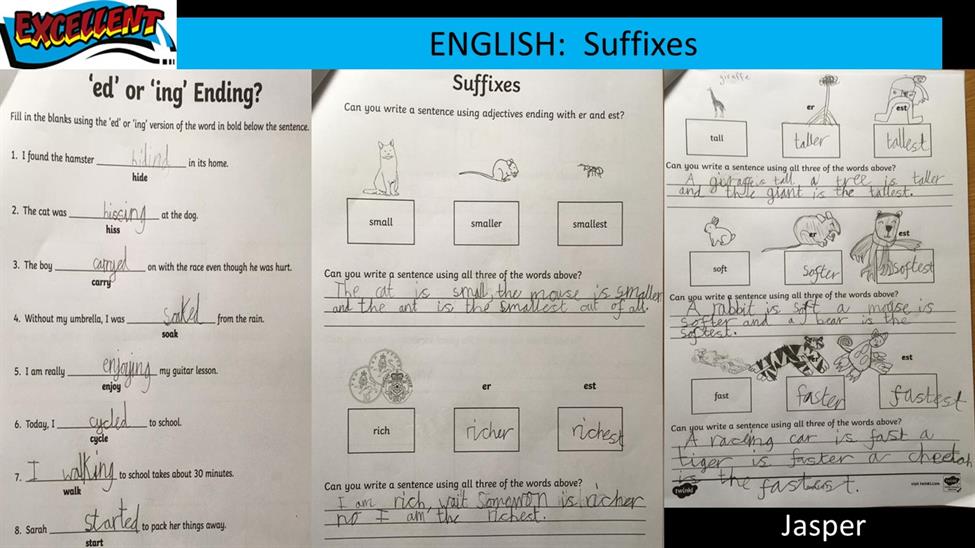 EXCELLENT
ENGLISH: Suffixes
'ed' or 'ing' Ending?
Fill in the blanks using the 'ed' or 'ing' version of the word in bold below the sentence.
1. I found the hamster hiding in its home.
hide
2. The cat was hissing at the dog.
hiss
3. The boy carryed on with the race even though he was hurt.
carry
4. Without my umbrella, I was soaked from the rain.
soak
5. I am really enjoying my guitar lesson.
enjoy
6. Today, I cycled to school.
cycle
7. I walking to school takes about 30 minutes.
walk
8. Sarah started to pack her things away.
start
Suffixes
Can you write a sentence using adjectives ending with er and est?
small smaller smallest
Can you write a sentence using all three of the words above?
The cat is small, the mouse is smaller
and the ant is the smallest out of all.
er est
rich richer richest
Can you write a sentence using all three of the words above?
I am rich, wait somewon is richer
no I am the richest.
giraffe
er est
tall taller tallest
Can you write a sentence using all three of the words above?
A giraffe is tall a tree is taller
and the giant is the tallest.
er est
soft softer softest
Can you write a sentence using all three of the words above?
A rabbit is soft a mouse is
softer and a bear is the
softest.
er est
fast faster fastest
Can you write a sentence using all three of the words above?
A racing car is fast a
tiger is faster a cheetah
is the fastest.
twinkl visit twinkl.com
Jasper